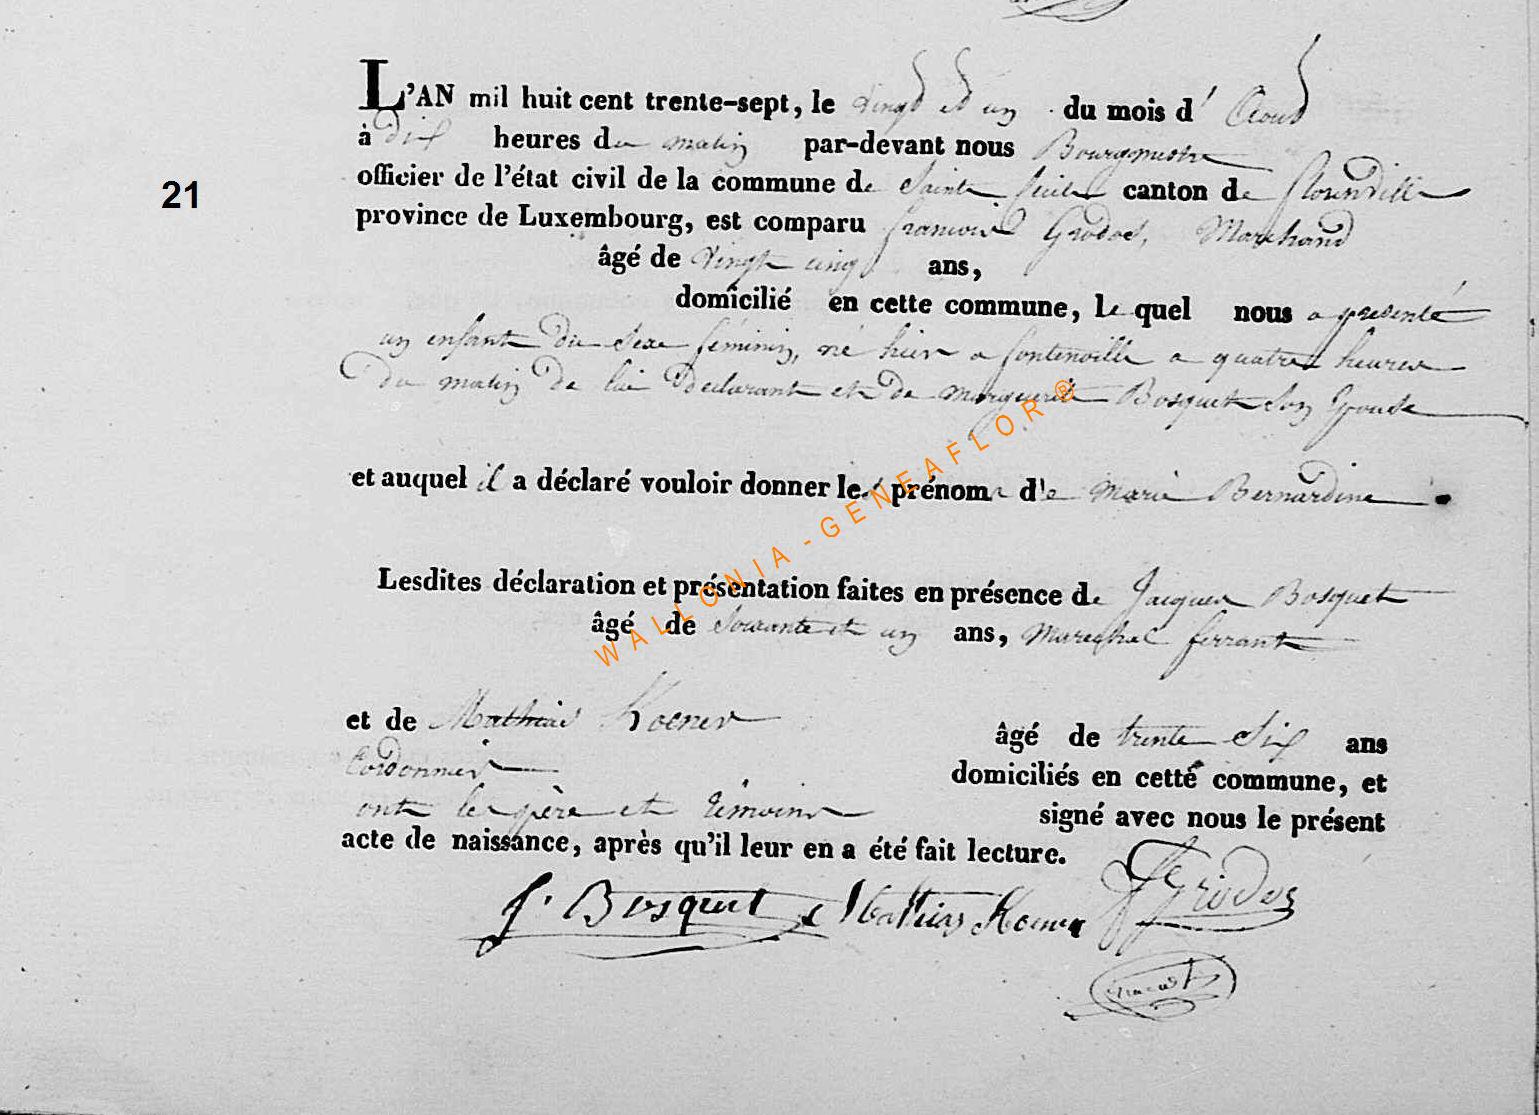 L'AN mil huit cent trente-sept, le vingt et un du mois d' Aout
à dix heures du matin par-devant nous Bourgmestre
21
officier de l'état civil de la commune de Sainte Cecile canton de florenville
province de Luxembourg, est comparu francois Grodos, Marchand
âgé de vingt cinq ans,
domicilié en cette commune, le quel nous a presenté
un enfant du sexe féminin, né hier a fontenoille a quatre heures
du matin de lui declarant et de marguerite Bosquet son Epouse
et auquel il a déclaré vouloir donner les prénoms de Marie Bernardine
Lesdites déclaration et présentation faites en présence de Jacques Bosquet
âgé de Soixante et un ans, marechal ferrant
et de Mathias Koener âgé de trente Six ans
Cordonnier domiciliés en cette commune, et
ont les père et témoins signé avec nous le présent
acte de naissance, après qu'il leur en a été fait lecture.
J. Bosquet Mathias Koener f Grodos
WALLONIA - GENEAFLOR ®